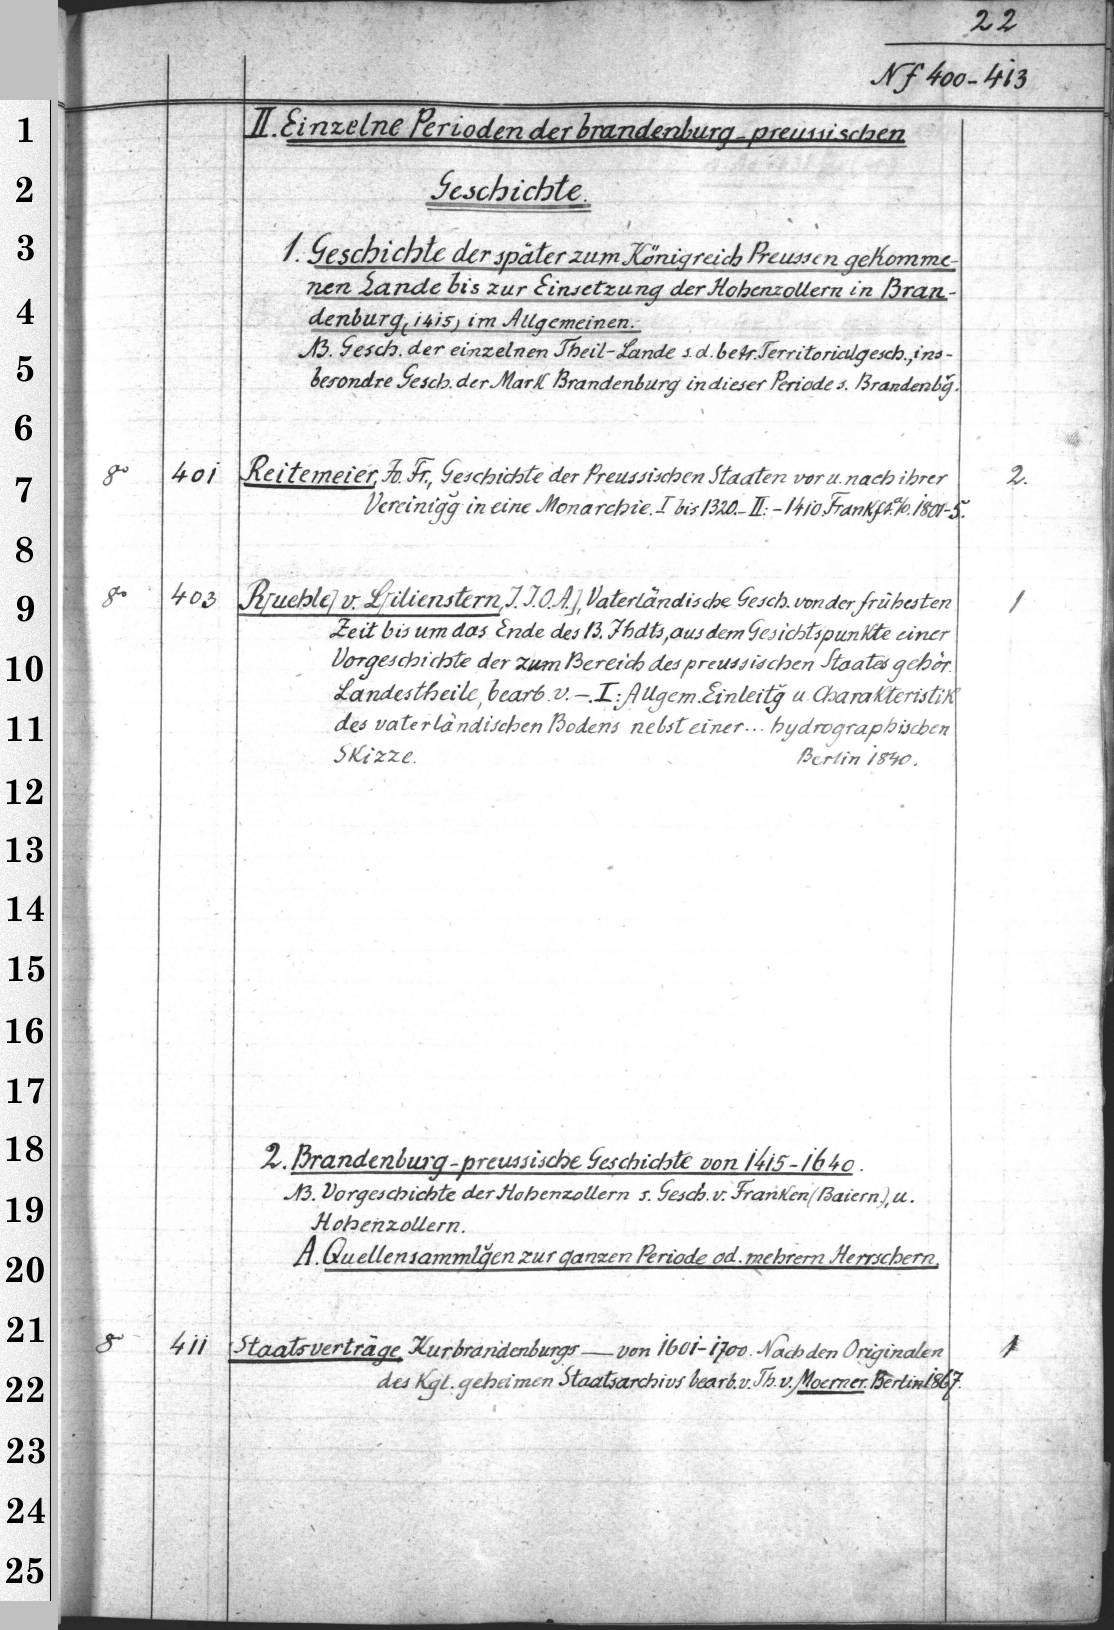 22
Nf 400-413
1
II. Einzelne Perioden der brandenburg-preussischen
2
Geschichte.
3
1. Geschichte der später zum Königreich Preussen gekomme-
nen Lande bis zur Einsetzung der Hohenzollern in Bran-
4
denburg (1415) im Allgemeinen.
NB. Gesch. der einzelnen Theil-Lande s. d. betr. Territorialgesch., ins-
5
besondre Gesch. der Mark Brandenburg in dieser Periode s. Brandenbg̃.
6
8° 401 Reitemeier, Jo. Fr., Geschichte der Preussischen Staaten vor u. nach ihrer 2.
7
Vereinig̃g in eine Monarchie. I bis 1320.- II: -1410. Frankft. a/O. 1801-5.
8
8° 403 R[uehle] v. L[ilienstern, J. J. O. A.], Vaterländische Gesch. von der frühesten 1
9
Zeit bis um das Ende des 13. Jhdts, aus dem Gesichtspunkte einer
10
Vorgeschichte der zum Bereich des preussischen Staates gehör.
Landestheile, bearb. v. -. I: Allgem. Einleitg̃ u. Charakteristik
11
des vaterländischen Bodens nebst einer ... hydrographischen
Skizze. Berlin 1840.
12
13
14
15
16
17
18
2. Brandenburg-preussische Geschichte von 1415-1640.
NB. Vorgeschichte der Hohenzollern s. Gesch. v. Franken (Baiern), u.
19
Hohenzollern.
20
A. Quellensammlg̃en zur ganzen Periode od. mehrern Herrschern.
21
8° 411 Staatsverträge, Kurbrandenburgs — von 1601-1700. Nach den Originalen 1
22
des Kgl. geheimen Staatsarchivs bearb. v. Th. v. Moerner. Berlin 1867.
23
24
25